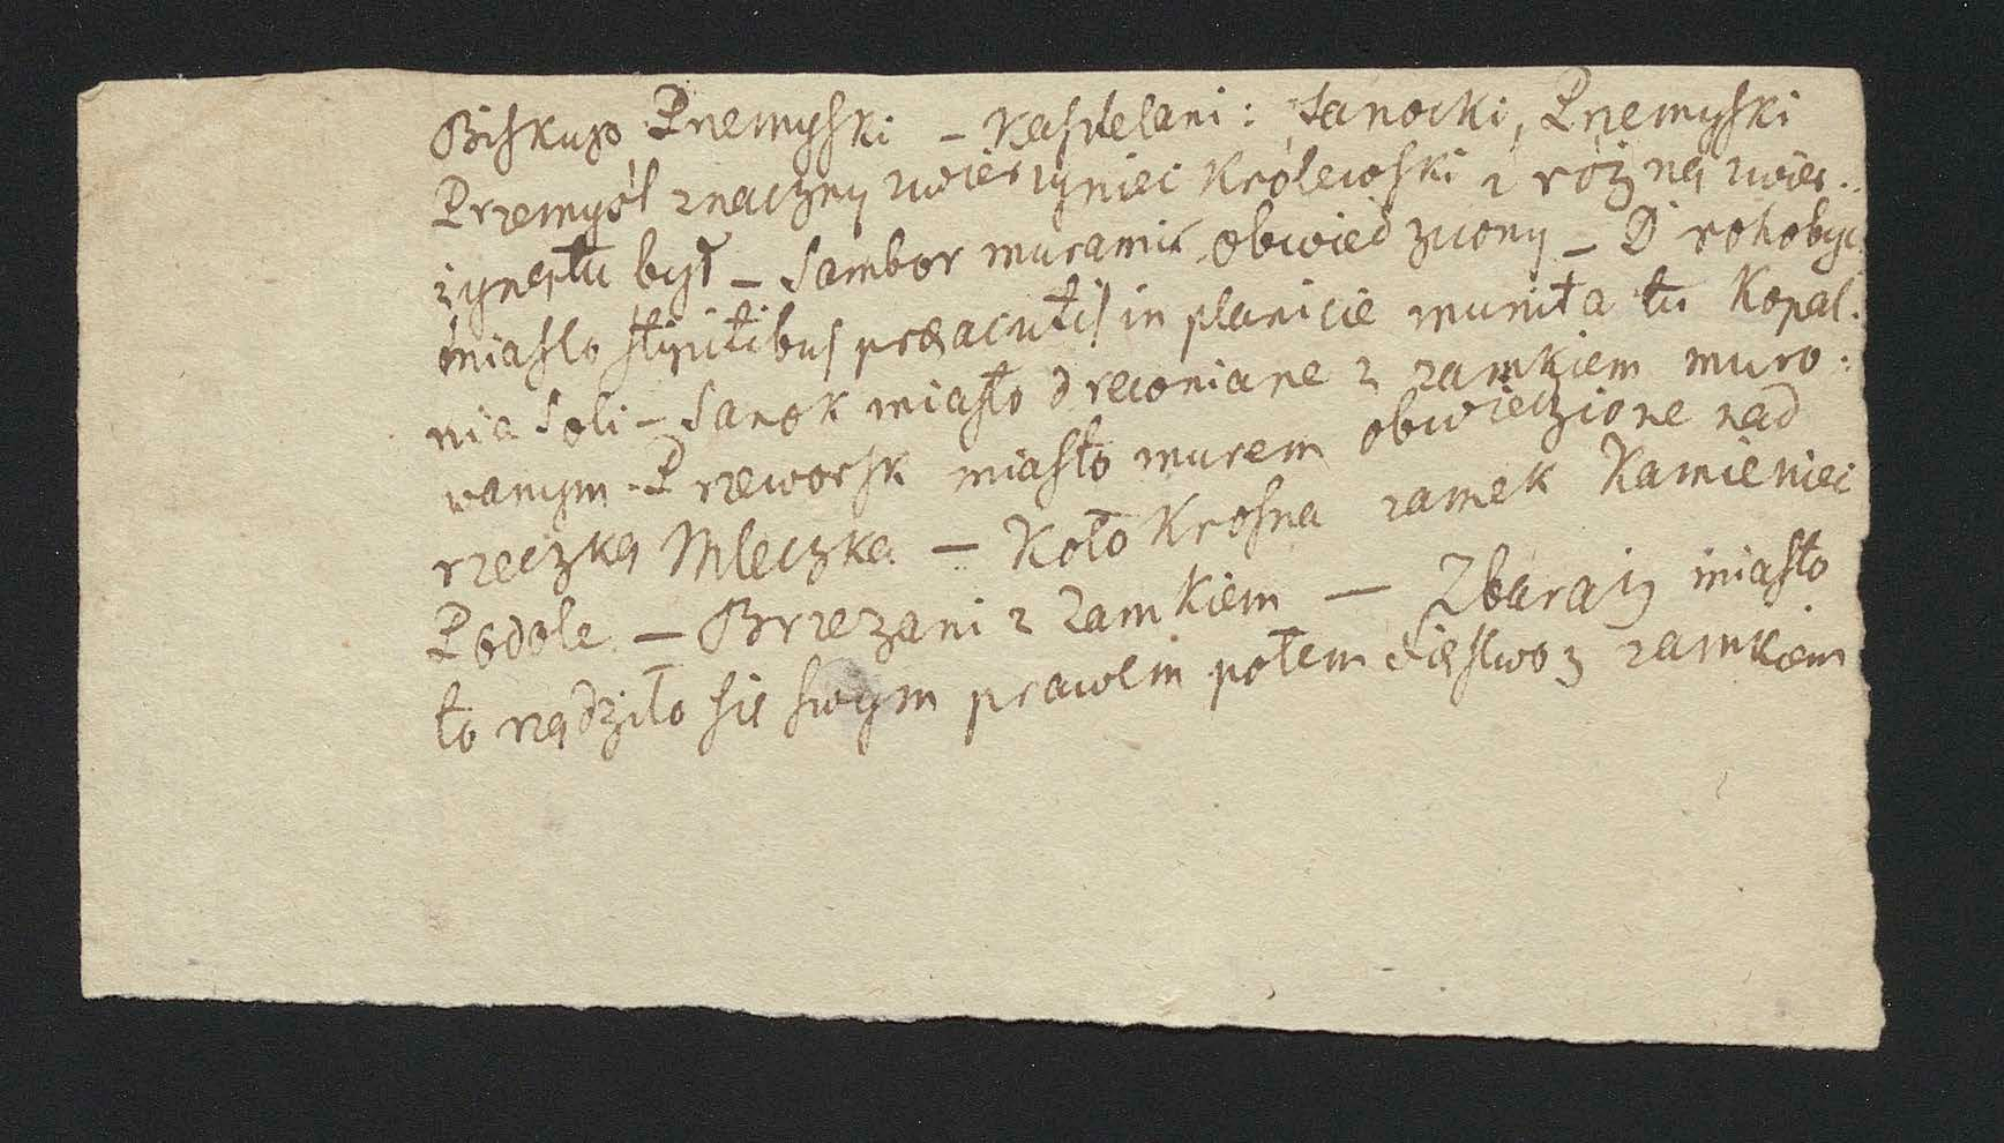 Biskup Przemyski – Kasztelani: Sanocki, Przemyski
Przemyśl znaczny zwierzyniec Królewski z różną zwier..
zyną tu był – Sambor muramik obwiedziony – Drohobyc
miasto stipitibus præacutis in planicie munita tu Kopal.
nia Soli – Sanok miasto drewniane z zamkiem muro:
wanym – Przeworsk miasto murem obwiedzione nad
rzeczką Mleczka – Koło Krosna zamek Kamieniec
Podole – Brzezani z Zamkiem – Zbaraż miasto
to rządziło się swym prawem potem z zamkiem